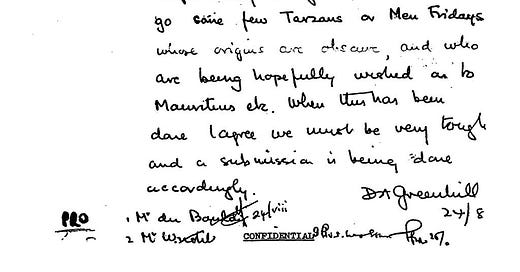 go some few Tarzans or Men Fridays
whose origins are obscure, and who
are being hopefully wished on to
Mauritius etc. When this has been
done I agree we must be very tough
and a submission is being done
accordingly.
DA Greenhill
24/8
PRO
1. Mr du Boulay 24/viii
2 Mr
CONFIDENTIAL